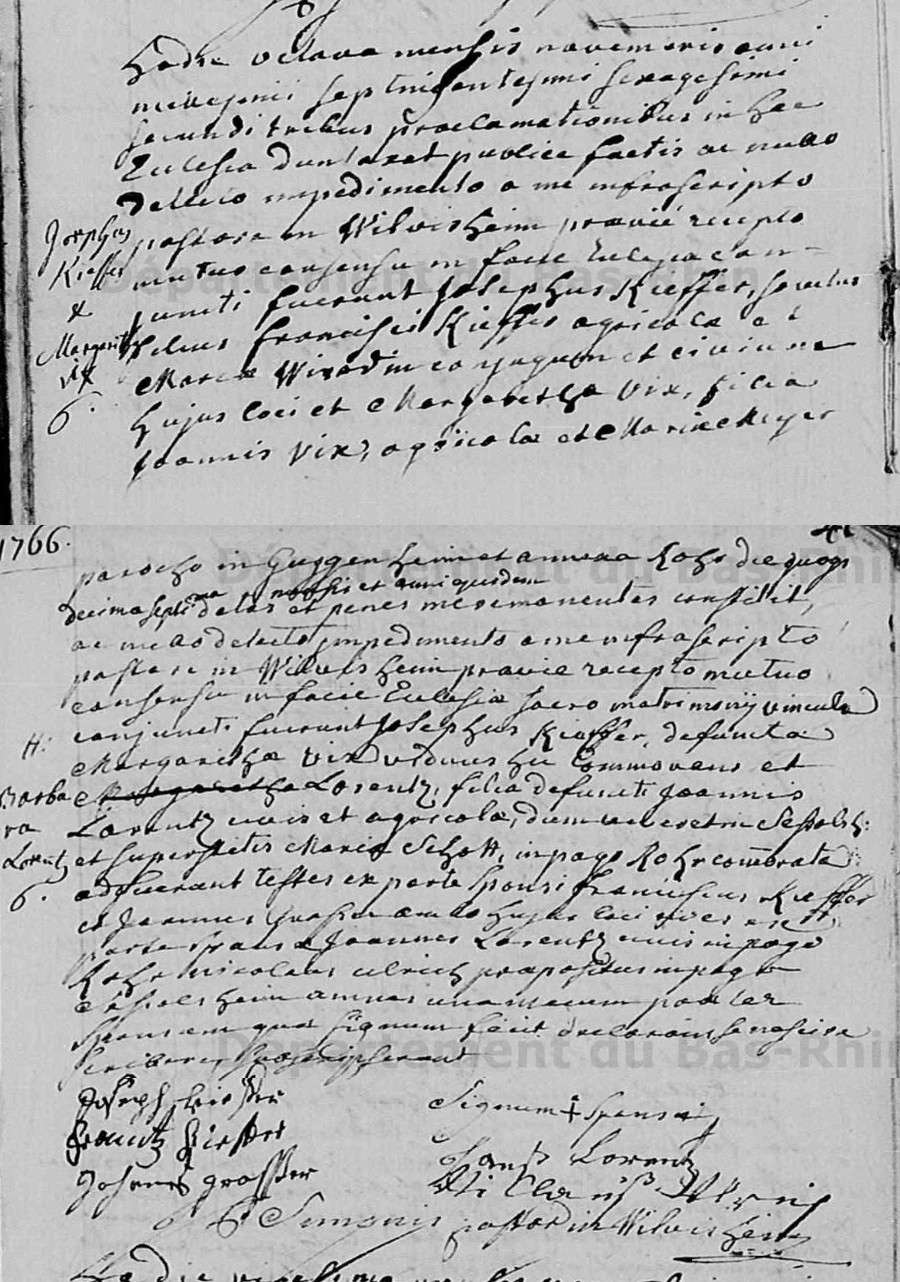 Hodie octava mensis novembris anni
millesimi septingentesimi sexagesimi
secundi tribus proclamationibus in hac
Ecclesia duntaxat publice factis ac nullo
detecto impedimento a me infrascripto
pastore in Wilwisheim praevie recepto
mutuo consensu in facie Ecclesiae con-
juncti fuerunt Josephus Kieffer, solutus
filius Francisci Kieffer agricolae et
Mariae conjugum et civium
hujus loci et Margaretha Vix, filia
Joannis Vix, agricolae et Mariae Meyer
Josephus
Kieffer
&
Margarita
Vix
6.
1766.
parocho in Guggenheim et annexa Rohr die quoque
decima septima mensis et anni ejusdem
datas et penes me remanentes constitit,
ac nullo detecto impedimento a me infrascripto
pastore in Wilwisheim praevie recepto mutuo
consensu in facie Ecclesiae sacro matrimonij vinculo
conjuncti fuerunt Josephus Kieffer, defunctae
Margarethae Vix viduus hic Commorans et
Margaretha Lorentz, filia defuncti Joannis
Lorentz civis et agricolae, dum viveret in
et superstitis Mariae Schott, in pago Rohr comorata
adfuerunt testes ex parte sponsi Franciscus Kieffer
et Joannes ambo hujus loci cives ex
parte sponsae Joannes Lorentz civis in pago
Rohr nicolaus ulrich praepositus in pago
omnes una mecum praeter
sponsam quae signum fecit declarans se nescire
scribere, subscripserunt
H:
Barba
ra
Lorentz
6.
Joseph Kieffer
Signum + sponsae
Frantz Kieffer
Hanß Lorentz
Johannes grosser
Simonis pastor in Wilwisheim
Hodie vigesima